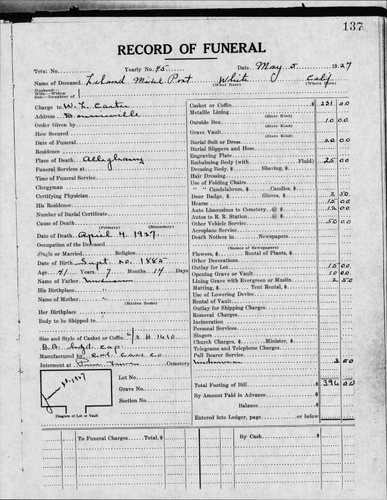 137
RECORD OF FUNERAL
Total No. Yearly No. 45 Date May 5 1927
Name of Deceased Leland Post White Calif
(What Race) (Where Born)
Husband
Wife—Widow of
Son—Daughter
Charge to W. L. Carter
Address
Order Given by
How Secured
Date of Funeral
Residence
Place of Death Alleghany
Funeral Services at
Time of Funeral Service
Clergyman
Certifying Physician
His Residence
Number of Burial Certificate
Cause of Death
(Primary) (Secondary)
Date of Death April 4, 1927
Occupation of the Deceased
Single or Married Religion
Date of Birth Sept. 20, 1885
Age 41 Years 7 Months 14 Days
Name of Father Unknown
His Birthplace
Name of Mother
(Maiden Name)
Her Birthplace
Body to be Shipped to
Size and Style of Casket or Coffin
Manufactured by
Interment at Cemetery
Lot No.
Grave No.
Section No.
Diagram of Lot or Vault
Casket or Coffin $ 221 00
Metallic Lining
(State Kind)
Outside Box 10 00
(State Kind)
Grave Vault
(State Kind)
Burial Suit or Dress 20 00
Burial Slippers and Hose
Engraving Plate
Embalming Body (with Fluid) 25 00
Dressing Body, $ Shaving, $
Hair Dressing
Use of Folding Chairs
" " Candelabrum, $ Candles, $
Door Badge, $ Gloves, $ 2 50
Hearse 15 00
Auto Limousines to Cemetery @ $ 12 00
Autos to R. R. Station @ $
Other Vehicle Service 50 00
Aeroplane Service
Death Notices in Newspapers
(Names of Newspapers)
Flowers, $ Rental of Plants, $
Other Decorations
Outlay for Lot 15 00
Opening Grave or Vault 10 00
Lining Grave with Evergreen or Muslin 2 50
Matting, $ Tent Rental, $
Use of Lowering Device
Rental of Vault
Outlay for Shipping Charges
Removal Charges
Incineration
Personal Services
Singers
Church Charges, $ Minister, $
Telegrams and Telephone Charges
Pall Bearer Service
Total Footing of Bill $
By Amount Paid in Advance
Balance
Entered into Ledger, page or below
To Funeral Charges Total, $ By Cash $